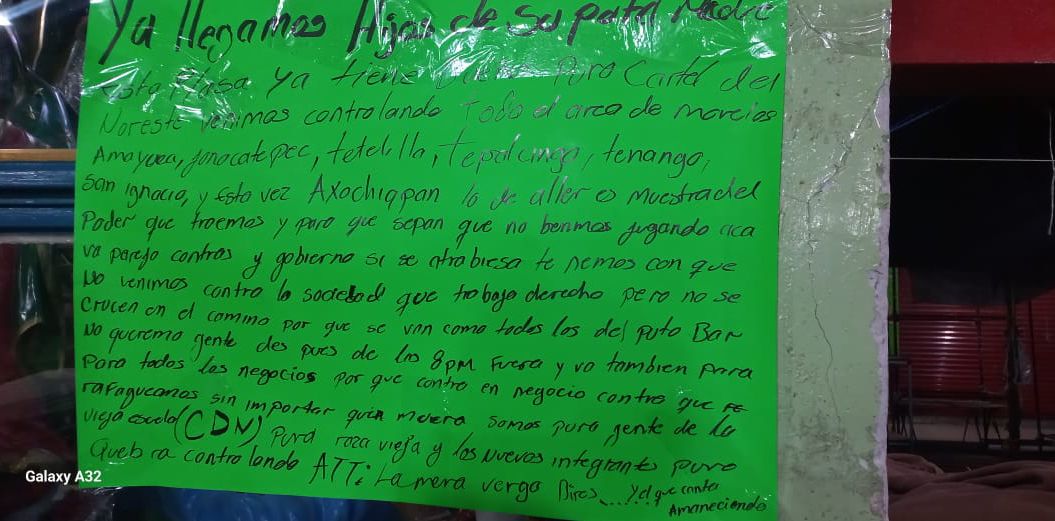 Ya llegamos Hijos de Su puta Madre
Esta Plasa ya tiene Puro Cartel del
Noreste venimos controlando Todo el area de morelos
Amayuca, jonacatepec, tetelilla, Tepalcingo, tenango,
san ignacio, y esta vez Axochiapan lo de aller es muestra del
Poder que traemos y para que sepan que no benimos jugando aca
va parejo contras y gobierno si se atrabiesa te nemos con que
No venimos contra la sociedad que trabaja derecho pero no se
Crucen en el camino por que se van como todos los del puto Bar
No queremo gente des pues de las 8pm Fuera y va tambien para
Para todos los negocios por que contra en negocio contra que
rafagueamos sin importar quin muera somos pura gente de la
vieja escuela (CDN) Pura raza vieja y los Nuevos integrantes puro
Queb ra controlando ATT: La mera verga Dires...... Y el que canta
Amaneciendo
Galaxy A32